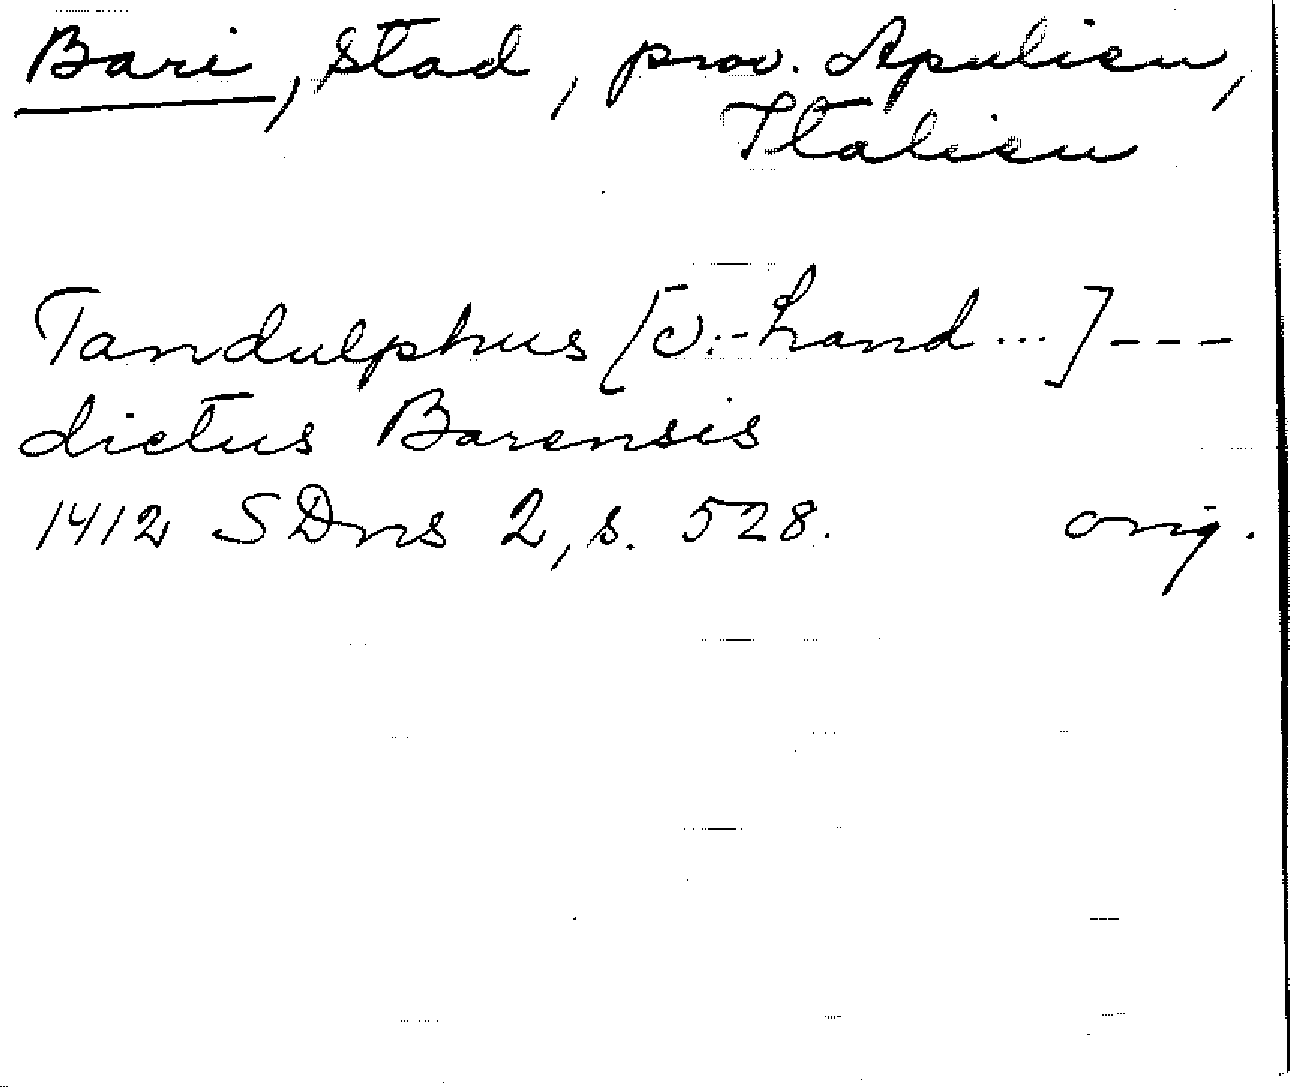 Bari, Stad, prov. Apulien,
Italien
Tandulphus [v.-hand...]---
dictus Barensis
1412 SDns 2, s. 528. orig.